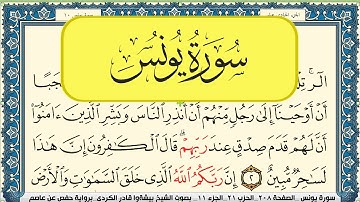 سورة يونس
الٓر ۚ تِلْ
جَبًا
أَنْ أَوْحَيْنَآ إِلَىٰ رَجُلٍ مِّنْهُمْ أَنْ أَنذِرِ ٱلنَّاسَ وَبَشِّرِ ٱلَّذِينَ ءَامَنُوٓا۟
أَنَّ لَهُمْ قَدَمَ صِدْقٍ عِندَ رَبِّهِمْ ۗ قَالَ ٱلْكَٰفِرُونَ إِنَّ هَٰذَا
لَسَٰحِرٌ مُّبِينٌ ٢ إِنَّ رَبَّكُمُ ٱللَّهُ ٱلَّذِى خَلَقَ ٱلسَّمَٰوَٰتِ وَٱلْأَرْضَ
سورة يونس الصفحة ٢٠٨ الحزب ٢١ الجزء ١١ بصوت الشيخ بيشةوا قادر الكردي برواية حفص عن عاصم